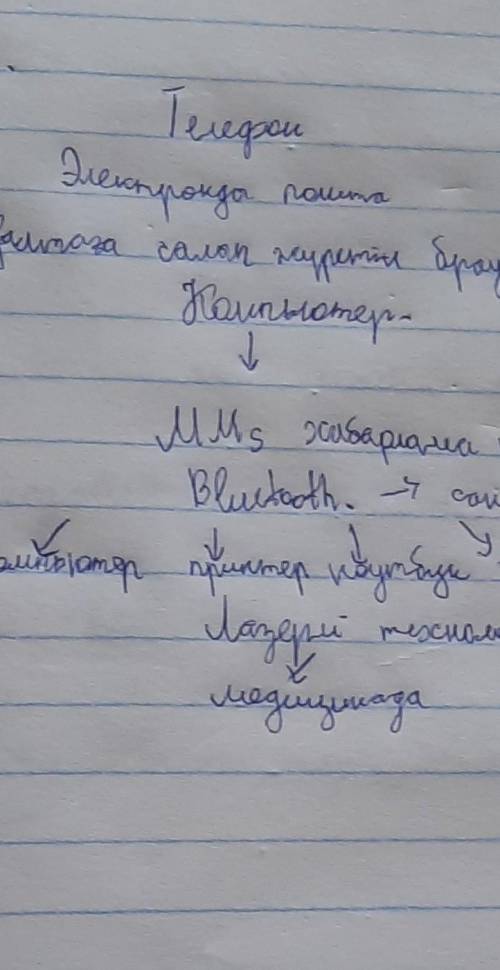 Телефон
Электронды пошта
Қалтаға салып жүретін брау
Компьютер
↓
MMS хабарлама
Bluetooth. → сай
омпьютер принтер ноутбук
Лазерлі технол
↓
медицинада